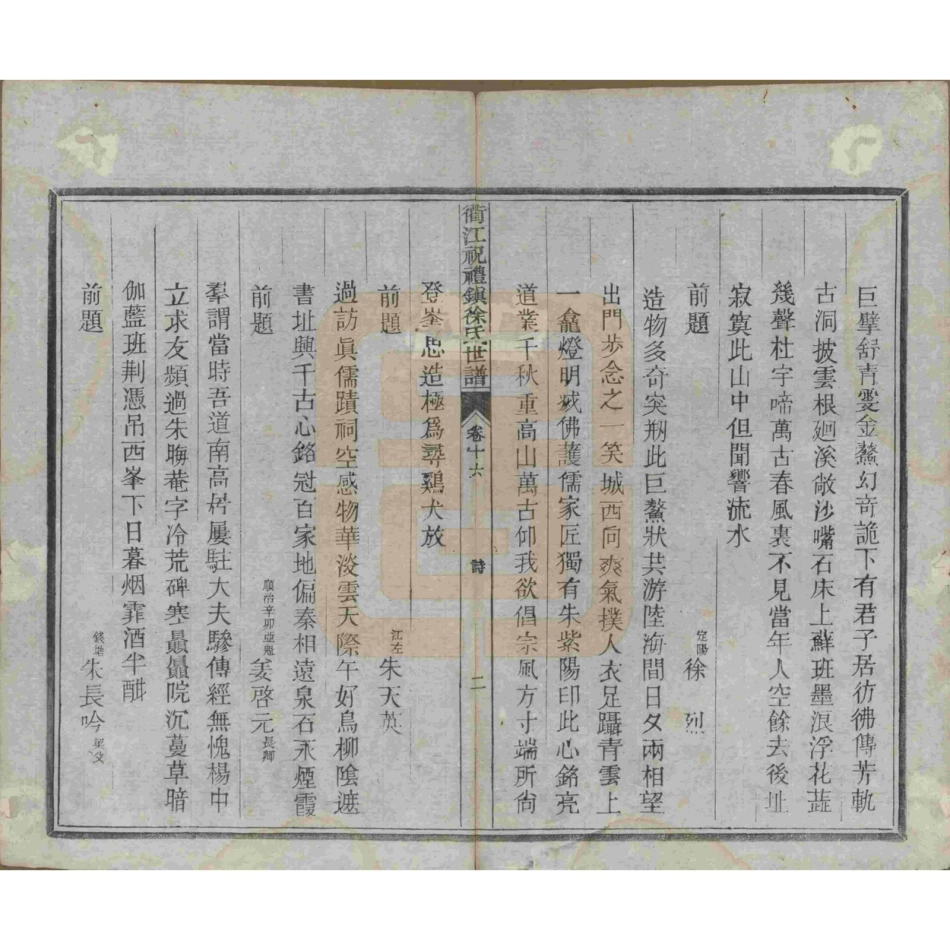 巨擘舒青雯金鰲幻奇詭下有君子居彷彿傳芳軌
古洞披雲根廻溪敞沙嘴石床上蘚班墨浪浮花蕋
幾聲杜宇啼萬古春風裏不見當年人空餘去後址
寂寞此山中但聞響流水
前題 定陽 徐烈
造物多奇突刱此巨鰲狀共游陸海間日夕兩相望
出門步念之一笑城西向爽氣撲人衣足躡青雲上
一龕燈明滅佛護儒家匠獨有朱紫陽印此心銘亮
道業千秋重高山萬古仰我欲倡宗風方寸端所尙
衢江祝禮鎭徐氏世譜 卷十六 詩 二
登峯思造極爲尋鷄犬放
前題 江左 朱天英
過訪眞儒蹟祠空感物華淡雲天際午好鳥柳陰遮
書址興千古心銘冠百家地偏秦相遠泉石永煙霞
前題 順治辛卯亞魁 姜啓元 長卿
羣謂當時吾道南高居屢駐大夫驂傳經無愧楊中
立求友頻過朱晦菴字冷荒碑寒贔屭院沉蔓草暗
伽藍班荆憑吊西峯下日暮烟霏酒半酣
前題 朱長吟